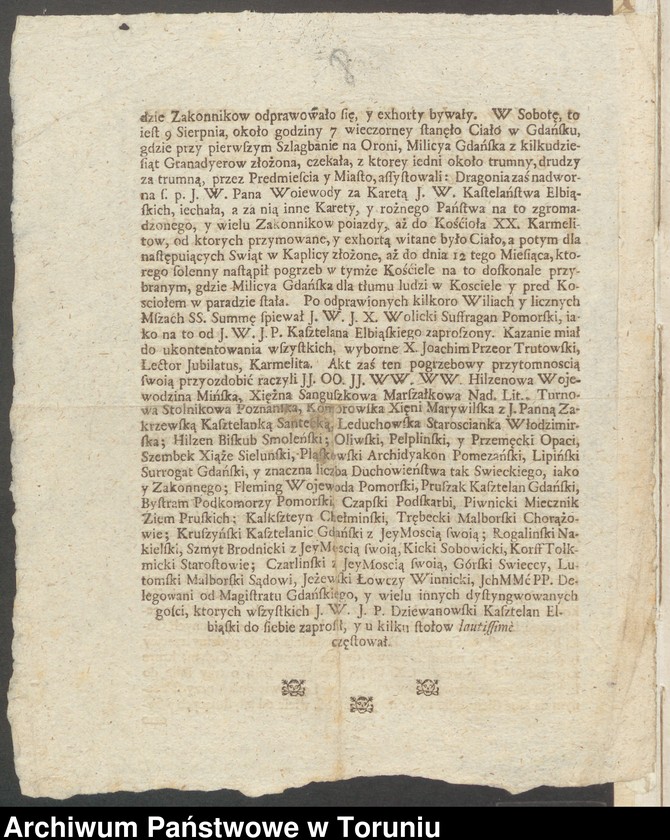 8
dzie Zakonnikow odprawowało się, y exhorty bywały. W Sobotę, to
iest 9 Sierpnia, około godziny 7 wieczorney stanęło Ciało w Gdańsku,
gdzie przy pierwszym Szlagbanie na Oroni, Milicya Gdańska z kilkudzie-
siąt Granadyerow złożona, czekała, z ktorey iedni około trumny, drudzy
za trumną, przez Predmieścia y Miasto, assystowali: Dragonia zaś nadwor-
na s. p. J. W. Pana Woiewody za Karetą J. W. Kastelaństwa Elbią-
skich, iechała, a za nią inne Karety, y rożnego Państwa na to zgroma-
dzonego, y wielu Zakonnikow poiazdy, aż do Kośćioła XX. Karmeli-
tow, od ktorych przymowane, y exhortą witane było Ciało, a potym dla
następuiących Swiąt w Kaplicy złożone, aż do dnia 12 tego Miesiąca, kto-
rego solenny nastąpił pogrzeb w tymże Kośćiele na to doskonale przy-
branym, gdzie Milicya Gdańska dla tłumu ludzi w Kosciele y pred Ko-
sciołem w paradzie stała. Po odprawionych kilkoro Wiliach y licznych
Mszach SS. Summę spiewał J. W. J. X. Wolicki Suffragan Pomorski, ia-
ko na to od J. W. J. P. Kasztelana Elbiąskiego zaproszony. Kazanie miał
do ukontentowania wszystkich, wyborne X. Joachim Przeor Trutowski,
Lector Jubilatus, Karmelita. Akt zaś ten pogrzebowy przytomnością
swoią przyozdobić raczyli JJ. OO. JJ. WW. WW. Hilzenowa Woje-
wodzina Mińska, Xiężna Sanguszkowa Marszałkowa Nad. Lit., Turno-
wa Stolnikowa Poznańska, Komorowska Xięni Marywilska z J. Panną Za-
krzewską Kasztelanką Santecką, Leduchowska Staroscianka Włodzimir-
ska; Hilzen Biskub Smoleński; Oliwski, Pelplinski, y Przemęcki Opaci,
Szembek Xiąże Sielunski, Pląskowski Archidyakon Pomezański, Lipiński
Surrogat Gdański, y znaczna liczba Duchowieństwa tak Swieckiego, iako
y Zakonnego; Fleming Wojewoda Pomorski, Pruszak Kasztelan Gdański,
Bystram Podkomorzy Pomorski, Czapski Podskarbi, Piwnicki Miecznik
Ziem Pruskich: Kalkszteyn Chełminski, Trębecki Malborski Chorążo-
wie; Kruszyński Kasztelanic Gdański z JeyMoscią swoią; Rogalinski Na-
kielski, Szmyt Brodnicki z JeyMęscią swoią, Kicki Sobowicki, Korff Tolk-
micki Starostowie; Czarlinski z JeyMoscią swoią, Górski Swieccy, Lu-
tomski Malborski Sądowi, Jeżewski Łowczy Winnicki, JchMMć PP. De-
legowani od Magistratu Gdańskiego, y wielu innych dystyngwowanych
gości, ktorych wszystkich J. W. J. P. Dziewanowski Kasztelan El-
biąski do siebie zaprosił, y u kilku stołow lautissimè
częstował.
Archiwum Państwowe w Toruniu